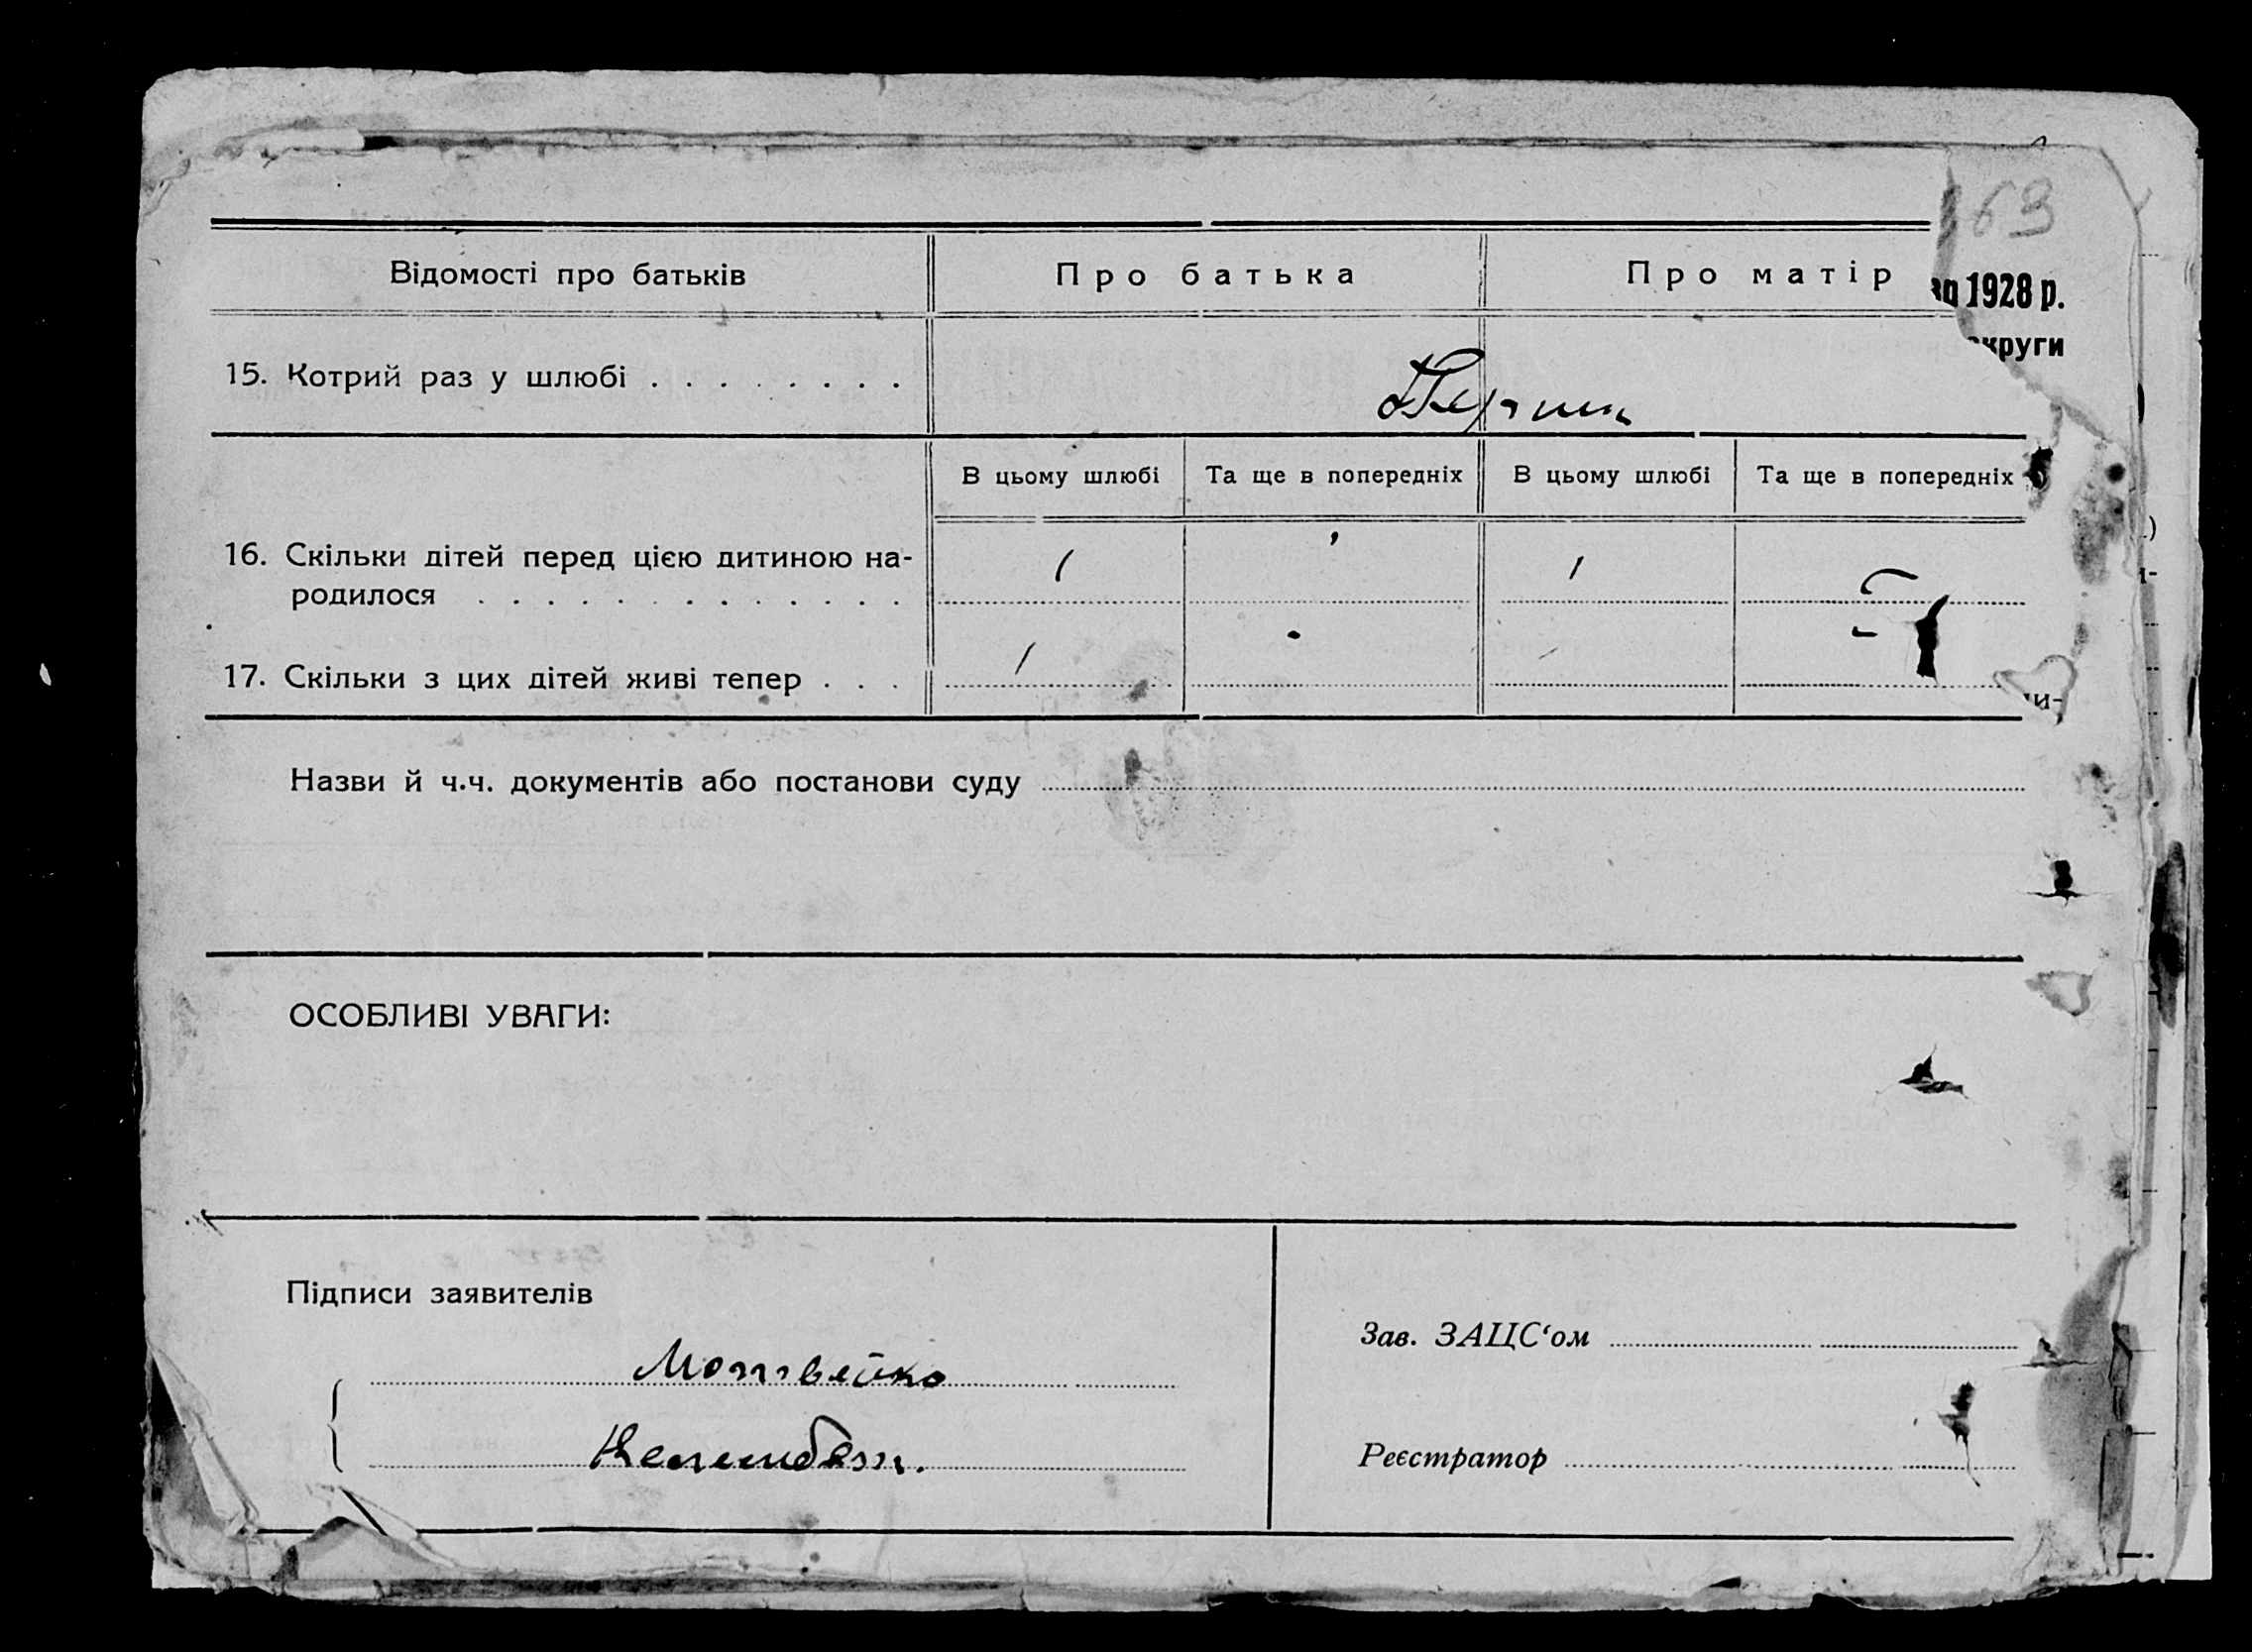 63
Відомості про батьків
Про батька
Про матір
1928 р.
округи
15. Котрий раз у шлюбі . . . . . . . .
В цьому шлюбі
Та ще в попередніх
В цьому шлюбі
Та ще в попередніх
16. Скільки дітей перед цією дитиною на-
родилося . . . . . . . . . . . . .
1
1
-
17. Скільки з цих дітей живі тепер . . .
1
-
-
Назви й ч.ч. документів або постанови суду
ОСОБЛИВІ УВАГИ:
Підписи заявителів
Матвейко
Зав. ЗАЦС‘ом
Реєстратор